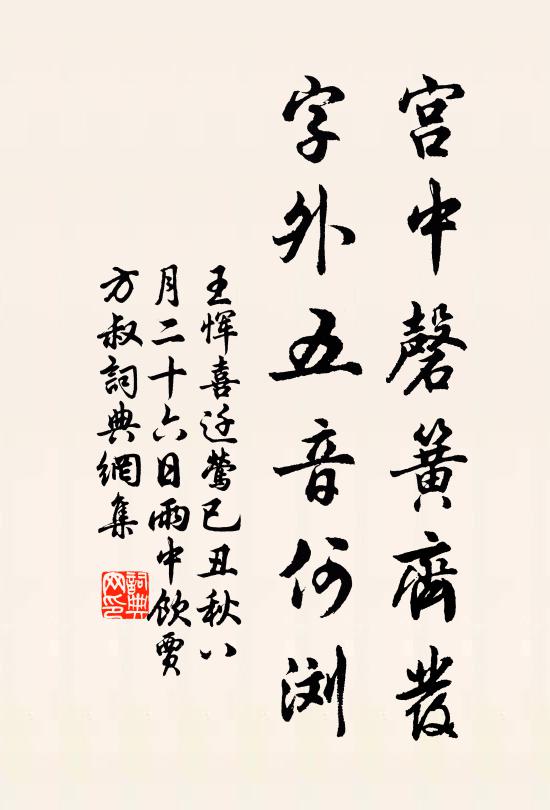 宮中磬簧齊發
字外五音何瀏
王惲喜迁鶯已丑秋八
月二十六日雨中飲賈
方叔詞典網集
詞典网印